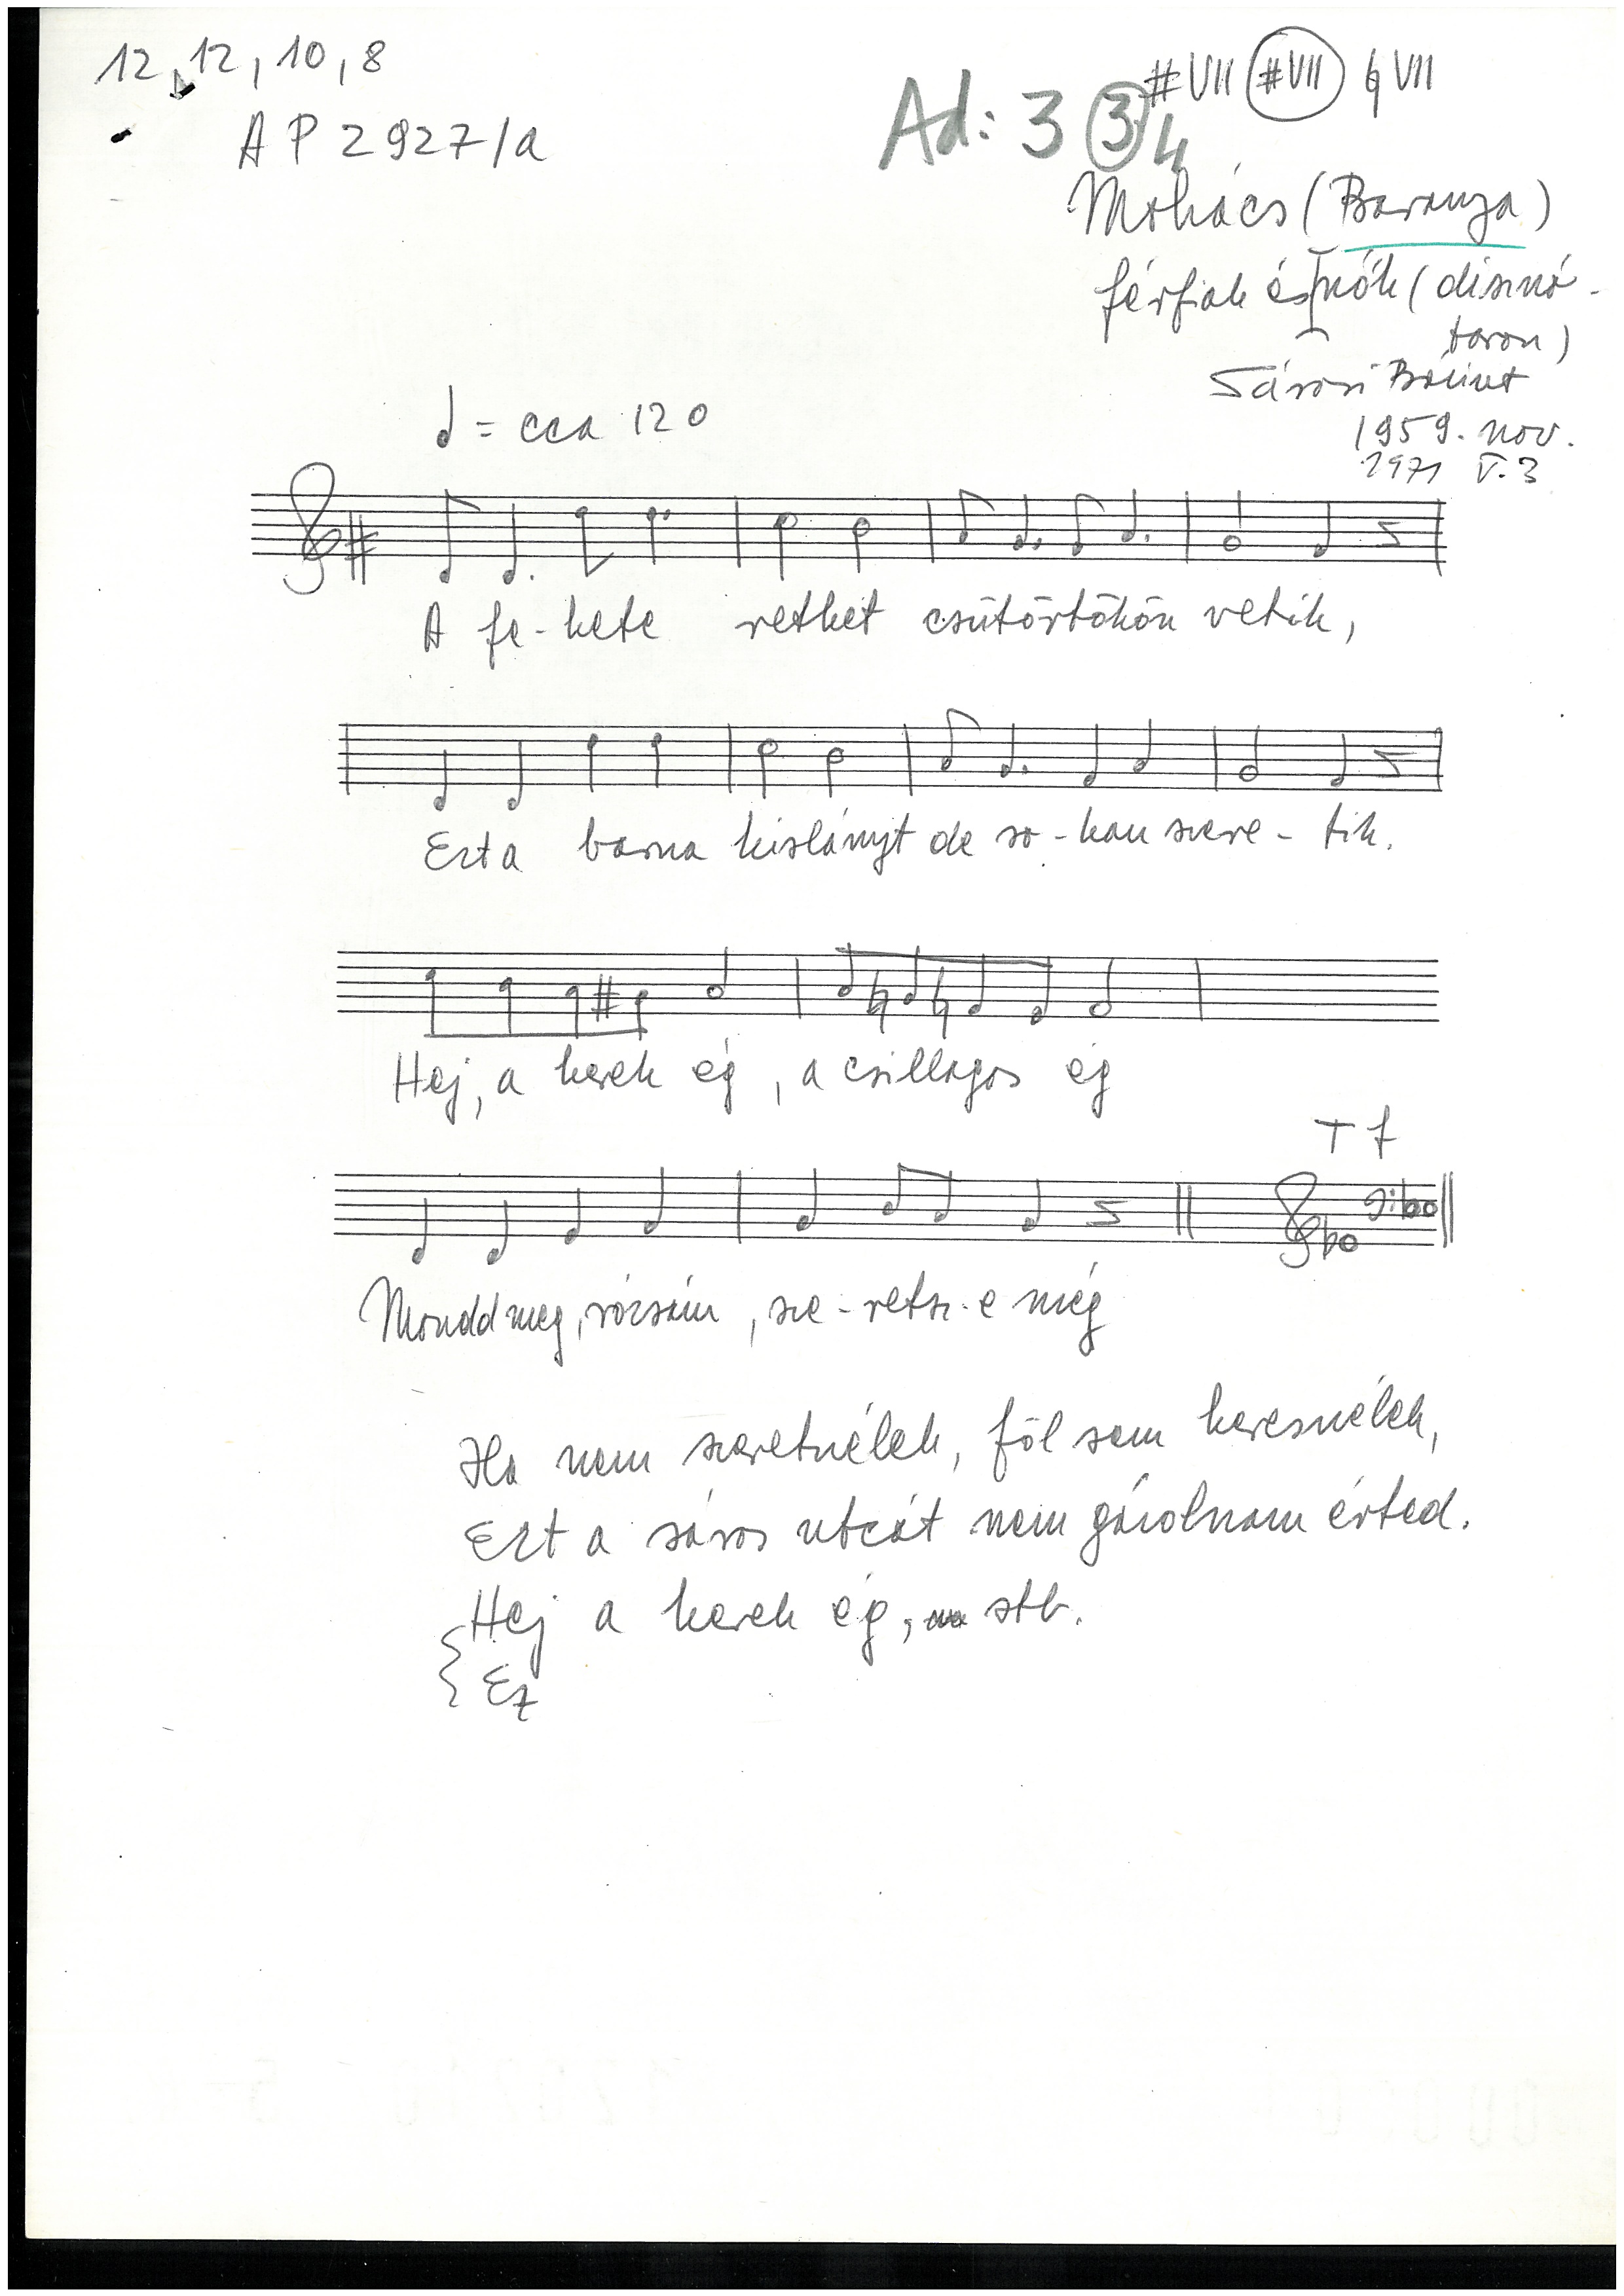 12, 12, 10, 8
#VII #VII ♮VII
AP 2927/a
Ad: 3 3 4
Mohács (Baranya)
férfiak és nők (disznó-
toron)
Sárosi Bálint
1959. nov.
1971 V. 3
= cca 120
A fe-kete retket csütörtökön vetik,
Ezt a barna kislányt de so-kan szere-tik.
Hej, a kerek ég, a csillagos ég
T 7
Mondd meg, rózsám, sze-retsz-e még
Ha nem szeretnélek, föl sem keresnélek,
Ezt a sáros utcát nem gázolnám érted.
Hej a kerek ég, stb.
Ez